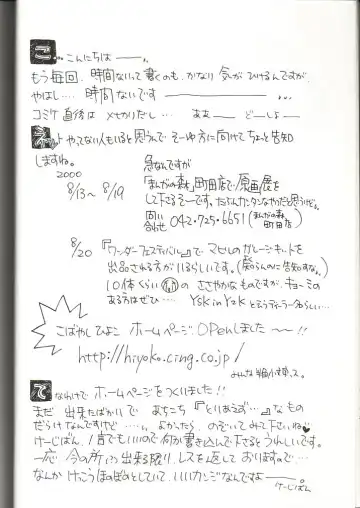 こ…こんにちは ――。
もう毎回、時間ないって書くのも、かなり気がひけるんですが、
やはし… 時間ないです ――――――― …。
コミケ直後は 〆切りだし… ああ― どーしよ―
ネットやってない人もいると思うんで そーゆ方に向けてちょっと告知
しますね。
2000
8/13〜8/19
急なんですが
「まんがの森」町田店で原画展を
して下さるそーです。たぶんカンタンなやだと思うけど。
問い合せ 042・725・6651 (まんがの森町田店)
8/20 『ワンダーフェスティバル』でマヒルのガレージキットを
出品される方がいらしいです。(知らんのに告知すな。)
10体くらいの ささやかなものですが、キョーミの
ある方はぜひ… YsK in YzK とゆうディーラーらしい…
こばやしひよこ ホームページ OPenしました〜〜!!
http://hiyoko.cing.co.jp/
みんな半角小文字で入力して。
でなわけで ホームページをつくりました!!
まだ 出来たばかりで あちこち 『とりあえず…』なもの
だらけなんですけど …。よかったら のぞいてみて下さいね♥
けーじばん、1言でもいいので何か書き込んで下さるとうれしいです。
一応 今の所は出来る限り、レスを返しておりますので…
なんか けっこうほのぼのとしていて、いいカンジなんですよ ――。
けーじばん